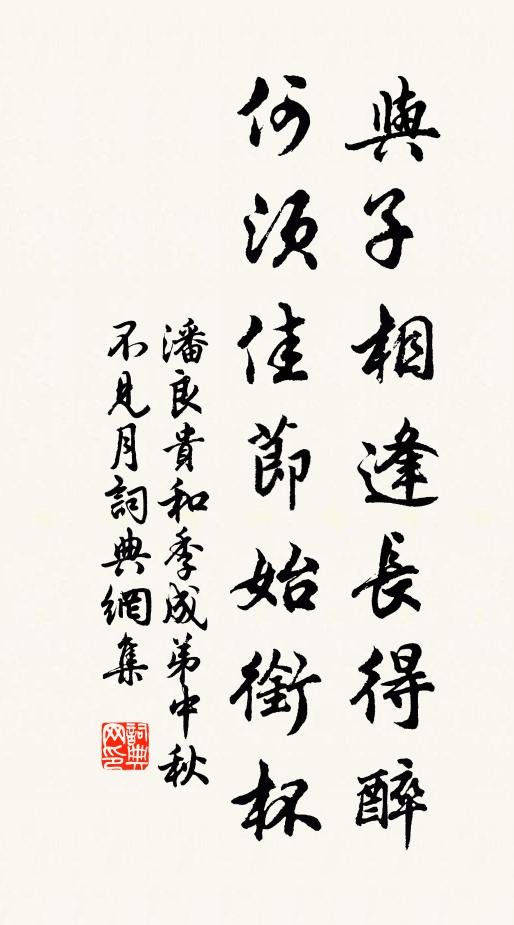 與子相逢長得醉
何須佳節始銜杯
潘良貴和季成弟中秋
不見月詞典網集
詞典网印